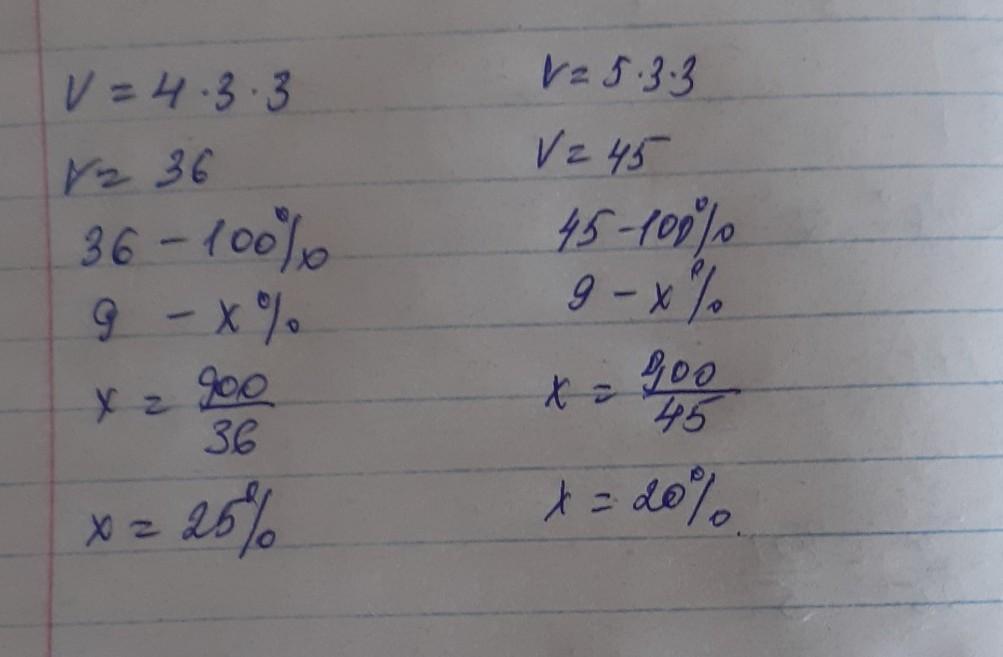 V = 4 · 3 · 3
V = 36
36 - 100%
9 - x%
x = 900/36
x = 25%
V = 5 · 3 · 3
V = 45
45 - 100%
9 - x%
x = 900/45
x = 20%.